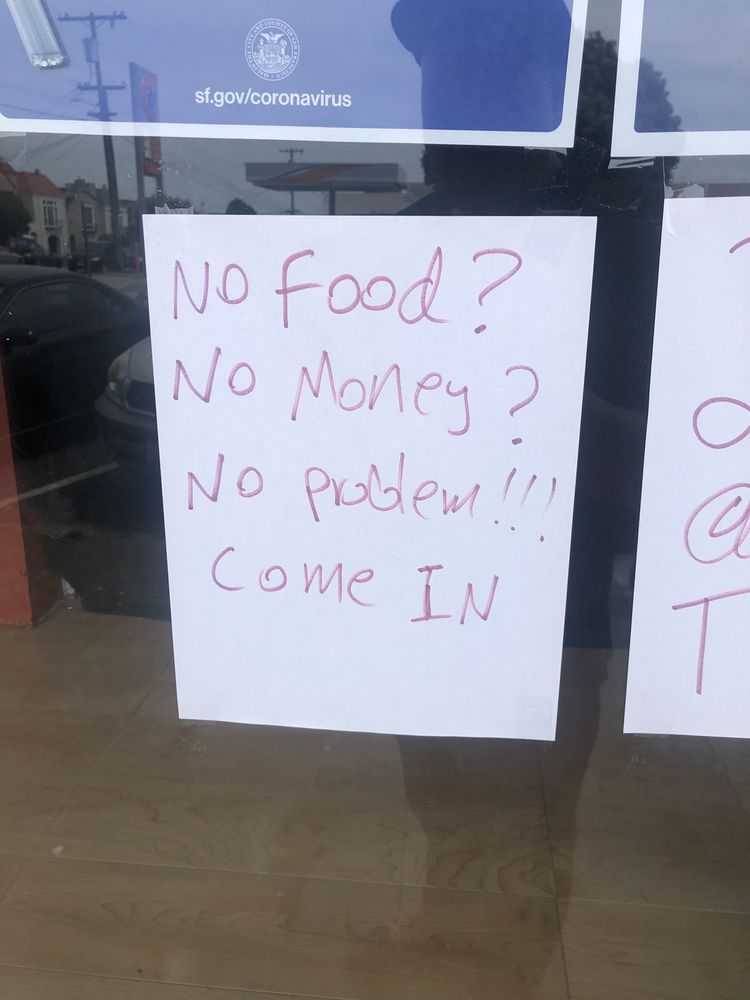 sf.gov/coronavirus
No food?
No Money?
No problem!!!
Come IN
@
T